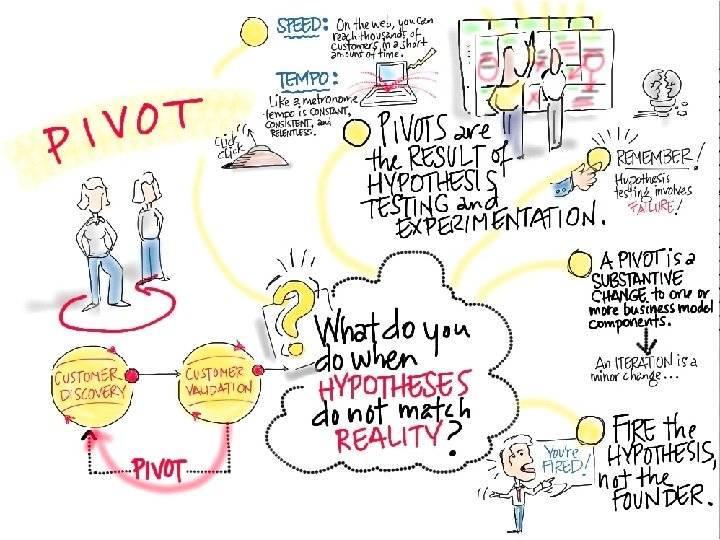 PIVOT
SPEED: On the web, you can
reach thousands of
customers in a short
amount of time.
TEMPO:
Like a metronome
tempo is CONSTANT,
CONSISTENT, and
RELENTLESS.
Click
Click
PIVOTS are
the RESULT of
HYPOTHESIS
TESTING and
EXPERIMENTATION.
REMEMBER!
Hypothesis
testing involves
FAILURE!
A PIVOT is a
SUBSTANTIVE
CHANGE to one or
more business model
components.
An ITERATION is a
minor change...
FIRE the
HYPOTHESIS,
not the
FOUNDER.
You're
FIRED!
?
What do you
do when
HYPOTHESES
do not match
REALITY?
CUSTOMER
DISCOVERY
CUSTOMER
VALIDATION
PIVOT